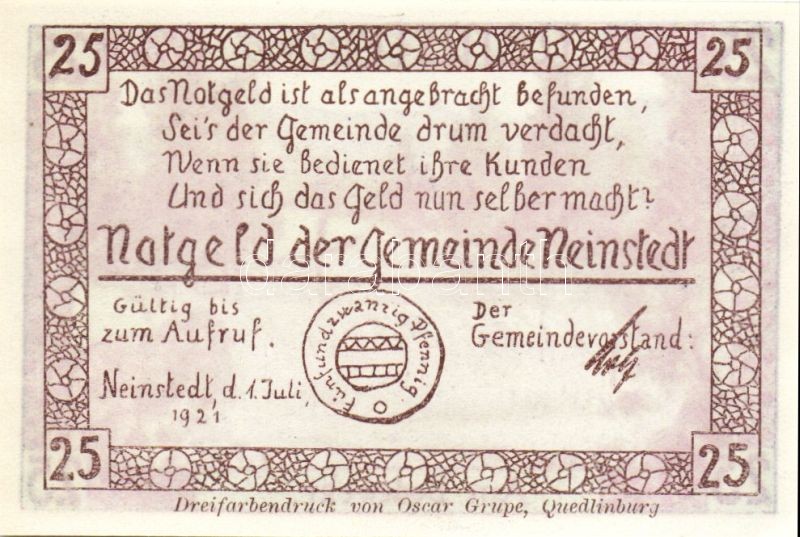 25 25
Das Notgeld ist als angebracht befunden,
Sei's der Gemeinde drum verdacht,
Wenn sie bedienet ihre Kunden
Und sich das Geld nun selber macht?
Notgeld der Gemeinde Neinstedt
Gültig bis
zum Aufruf.
Fünfundzwanzig Pfennig.
Der
Gemeindevorstand:
Neinstedt, d. 1. Juli,
1921
25 25
Dreifarbendruck von Oscar Grupe, Quedlinburg
darabanth